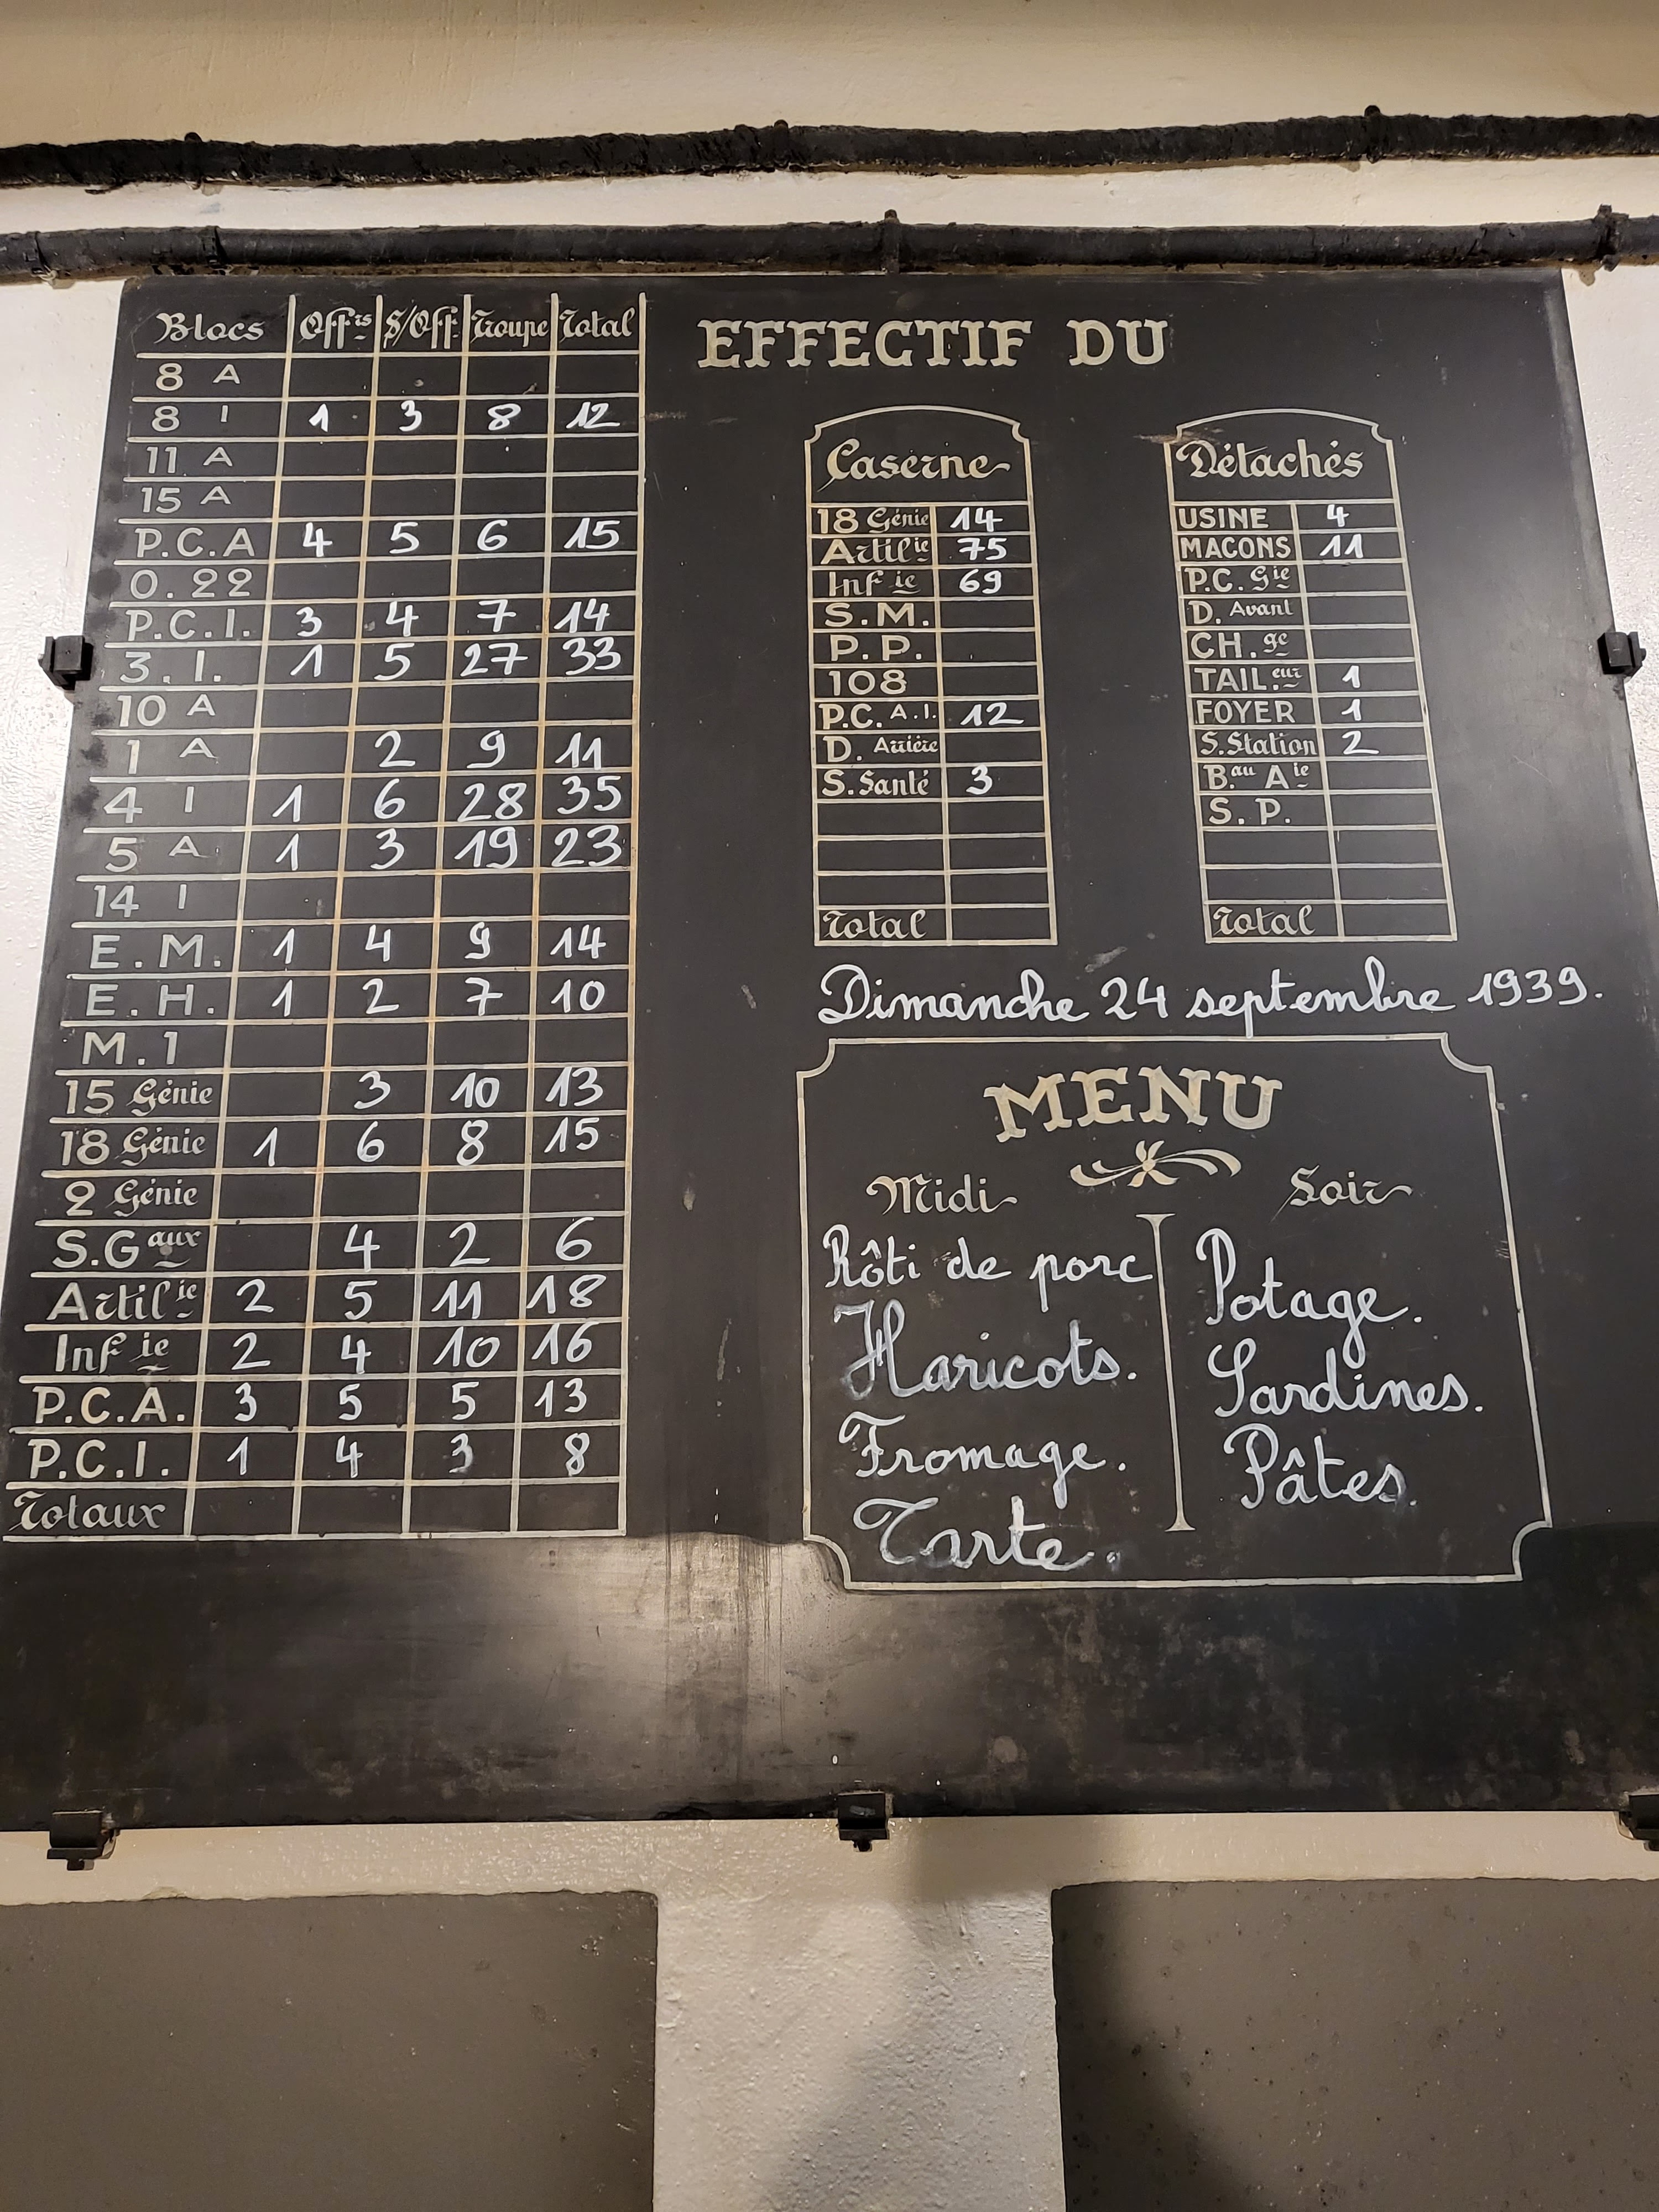 Blocs Offrs S/Off Troupe Total
8 A
8 I 1 3 8 12
11 A
15 A
P.C.A 4 5 6 15
O.22
P.C.I. 3 4 7 14
3.I. 1 5 27 33
10 A
1 A 2 9 11
4 I 1 6 28 35
5 A 1 3 19 23
14 I
E.M. 1 4 9 14
E.H. 1 2 7 10
M.1
15 Génie 3 10 13
18 Génie 1 6 8 15
2 Génie
S.Gaux 4 2 6
Artilie 2 5 11 18
Infie 2 4 10 16
P.C.A. 3 5 5 13
P.C.I. 1 4 3 8
Totaux
EFFECTIF DU
Caserne
18 Génie 14
Artilie 75
Infie 69
S.M.
P.P.
108
P.C. A.I. 12
D. Arrière
S. Santé 3
Total
Détachés
USINE 4
MACONS 11
P.C. Gie
D. Avant
CH.ge
TAIL.eur 1
FOYER 1
S.Station 2
Bau Aie
S.P.
Total
Dimanche 24 septembre 1939.
MENU
Midi
Rôti de porc
Haricots.
Fromage.
Tarte.
Soir
Potage.
Sardines.
Pâtes.